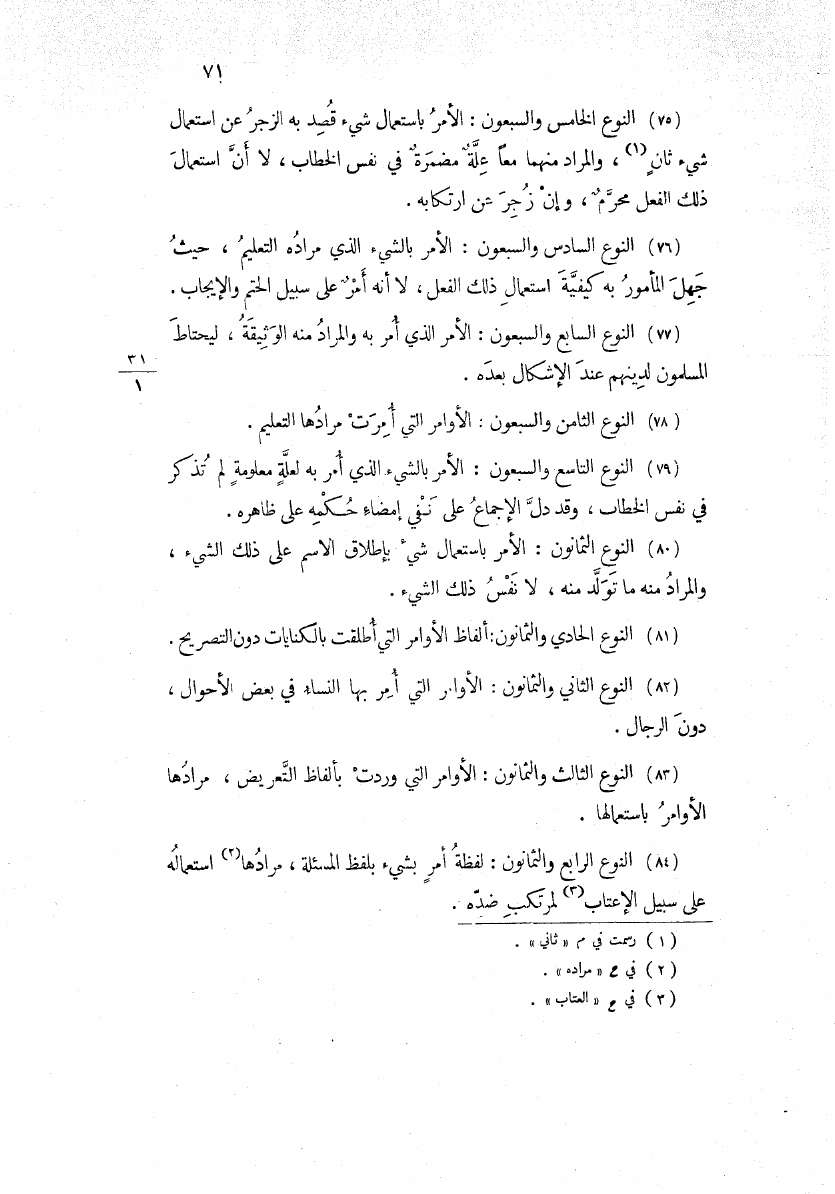 ٧١
(٧٥) النوع الخامس والسبعون : الأمرُ باستعمال شيء قُصِد به الزجرُ عن استعمال
شيء ثانٍ(١) ، والمراد منهما معاً عِلَّةٌ مضمَرَةٌ في نفس الخطاب ، لا أَنَّ استعمالَ
ذلك الفعل محرَّمٌ ، وإنْ زُجِرَ عن ارتكابه .
(٧٦) النوع السادس والسبعون : الأمر بالشيء الذي مرادُه التعليمُ ، حيثُ
جَهِلَ المأمورُ به كيفيَّةَ استعمالِ ذلك الفعل ، لا أنه أَمْرٌ على سبيل الحتم والإيجاب .
(٧٧) النوع السابع والسبعون : الأمر الذي أُمر به والمرادُ منه الوَثِيقَةُ ، ليحتاطَ
المسلمون لدِينهم عندَ الإشكال بعدَه .
٣١
١
(٧٨) النوع الثامن والسبعون : الأوامر التي أُمِرَتْ مرادُها التعليم .
(٧٩) النوع التاسع والسبعون : الأمر بالشيء الذي أُمر به لعلَّةٍ معلومةٍ لم تُذكر
في نفس الخطاب ، وقد دلَّ الإجماعُ على نَفْي إمضاءِ حُكْمِه على ظاهره .
(٨٠) النوع الثمانون : الأمر باستعمال شيءٍ بإطلاق الاسم على ذلك الشيء ،
والمرادُ منه ما تَوَلَّد منه ، لا نَفْسُ ذلك الشيء .
(٨١) النوع الحادي والثمانون: ألفاظ الأوامر التي أُطلقت بالكنايات دون التصريح .
(٨٢) النوع الثاني والثمانون : الأوامر التي أُمِر بها النساء في بعض الأحوال ،
دونَ الرجال .
(٨٣) النوع الثالث والثمانون : الأوامر التي وردتْ بألفاظ التَّعريض ، مرادُها
الأوامرُ باستعمالها .
(٨٤) النوع الرابع والثمانون : لفظةُ أمرٍ بشيء بلفظ المسئلة ، مرادُها(٢) استعمالُه
على سبيل الإعتاب(٣) لمرتكبِ ضدّه .
(١) رسمت في م « ثاني » .
(٢) في ع « مراده » .
(٣) في ع « العتاب » .